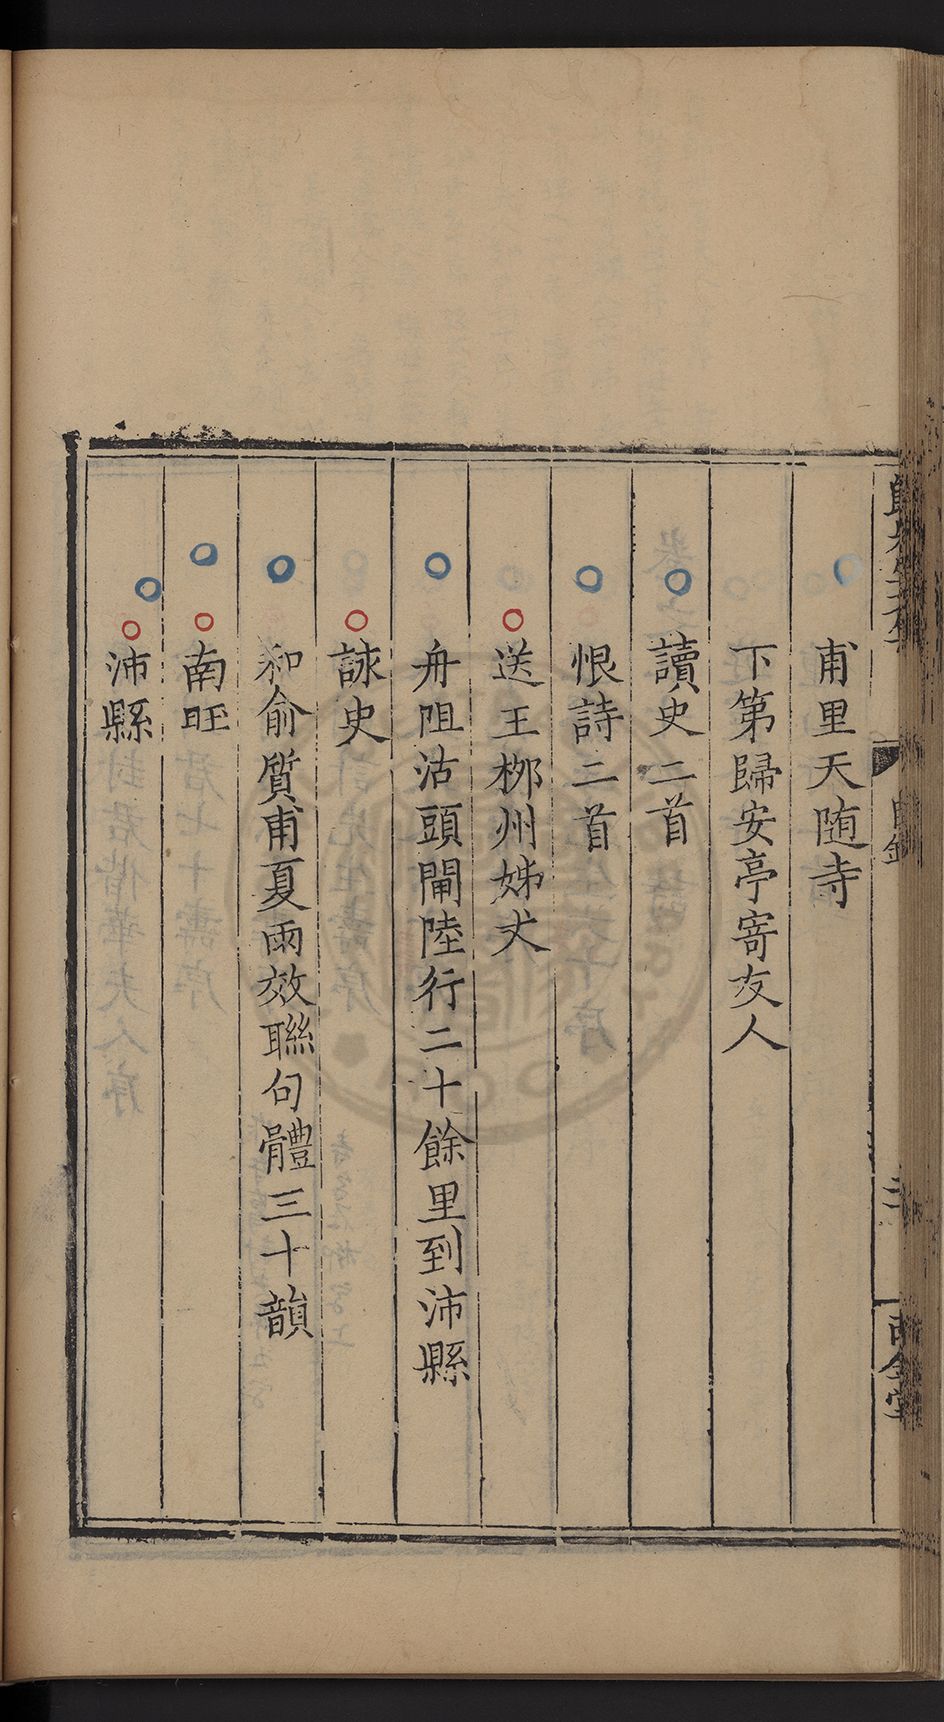 甫里天随寺
下第歸安亭寄友人
讀史二首
恨詩二首
送王栁州姊丈
舟阻沽頭閘陸行二十餘里到沛縣
詠史
和俞質甫夏雨效聯句體三十韻
南旺
沛縣